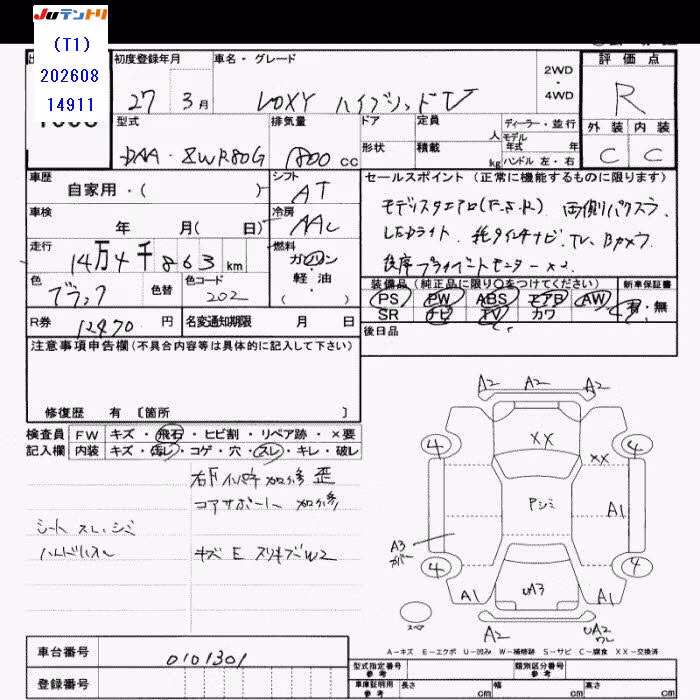 JUテントリ
(T1)
202608
14911
初度登録年月
車名・グレード
2WD
・
4WD
評価点
27 3月
VOXY ハイブリッドV
R
型式
排気量
ドア
定員
人
ディーラー・並行
モデル
年式 年
外装 内装
DAA・ZWR80G
1800 cc
形状
積載
kg
ハンドル 左・右
C C
車歴
自家用・( )
シフト
AT
セールスポイント (正常に機能するものに限ります)
車検
年 月( 日)
冷房
AAC
モデリスタエアロ(F.S.R) 両側パワスラ
LEDライト 純タインチナビ.TV.Bカメラ
後席プライベートモニター×2
走行
14万4千863km
燃料
ガソリン
軽・油
( )
色
ブラック
色替
色コード
202
装備品 (純正品に限り○をつけてください)
新車保証書
PS PW ABS エアB AW
有・無
SR ナビ TV カワ
R券 12470 円
名変通知期限 月 日
後日品
注意事項申告欄(不具合内容等は具体的に記入して下さい)
修復歴 有 〔箇所 〕
検査員 FW キズ・飛石・ヒビ割・リペア跡・×要
記入欄 内装 キズ・汚レ・コゲ・穴・スレ・キレ・破レ
コアサポート 加修
シート スレ.シミ
ハンドルスレ
キズ E スリキズ W2
A2 A2 A2
4 XX 4
XX
Pシミ
A1
A3
カバー
4 4
A1 UA3 A1
スペア
A2
UA2
ワレ
A-キズ E-エクボ U-凹み W-補修跡 S-サビ C-腐食 XX-交換済
車台番号 0101301
登録番号
型式指定番号
参考
類別区分番号
参考
車庫証明用
参考
長さ cm 幅 cm 高さ cm